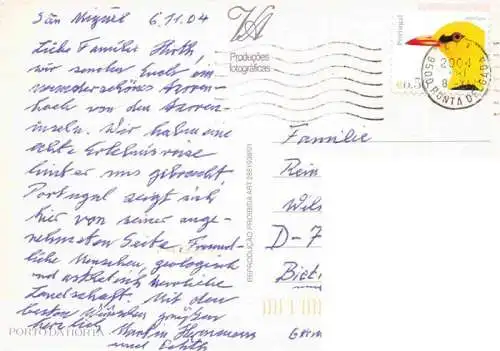 San Miguel 6.11.04
Liebe Familie Hirth,
wir senden Euch ein
wunderschönes Azoren-
hoch von den Azoren-
inseln. Wir haben eine
echte Erlebnisreise
hinter uns gebracht
Portugal zeigt sich
hier von seiner ange-
nehmsten Seite. Freund-
liche Menschen, geologisch
und ästhetisch herrliche
Landschaft. Mit den
besten Wünschen grüßen
herzlich Martin Herrmann
und Edith
PORTO DA HORTA
Produções
fotográficas
REPRODUÇÃO PROIBIDA ART
Portugal
€0,30
2004
9500 PONTA DELGADA
Familie
Rein
Wils
D-7
Biet